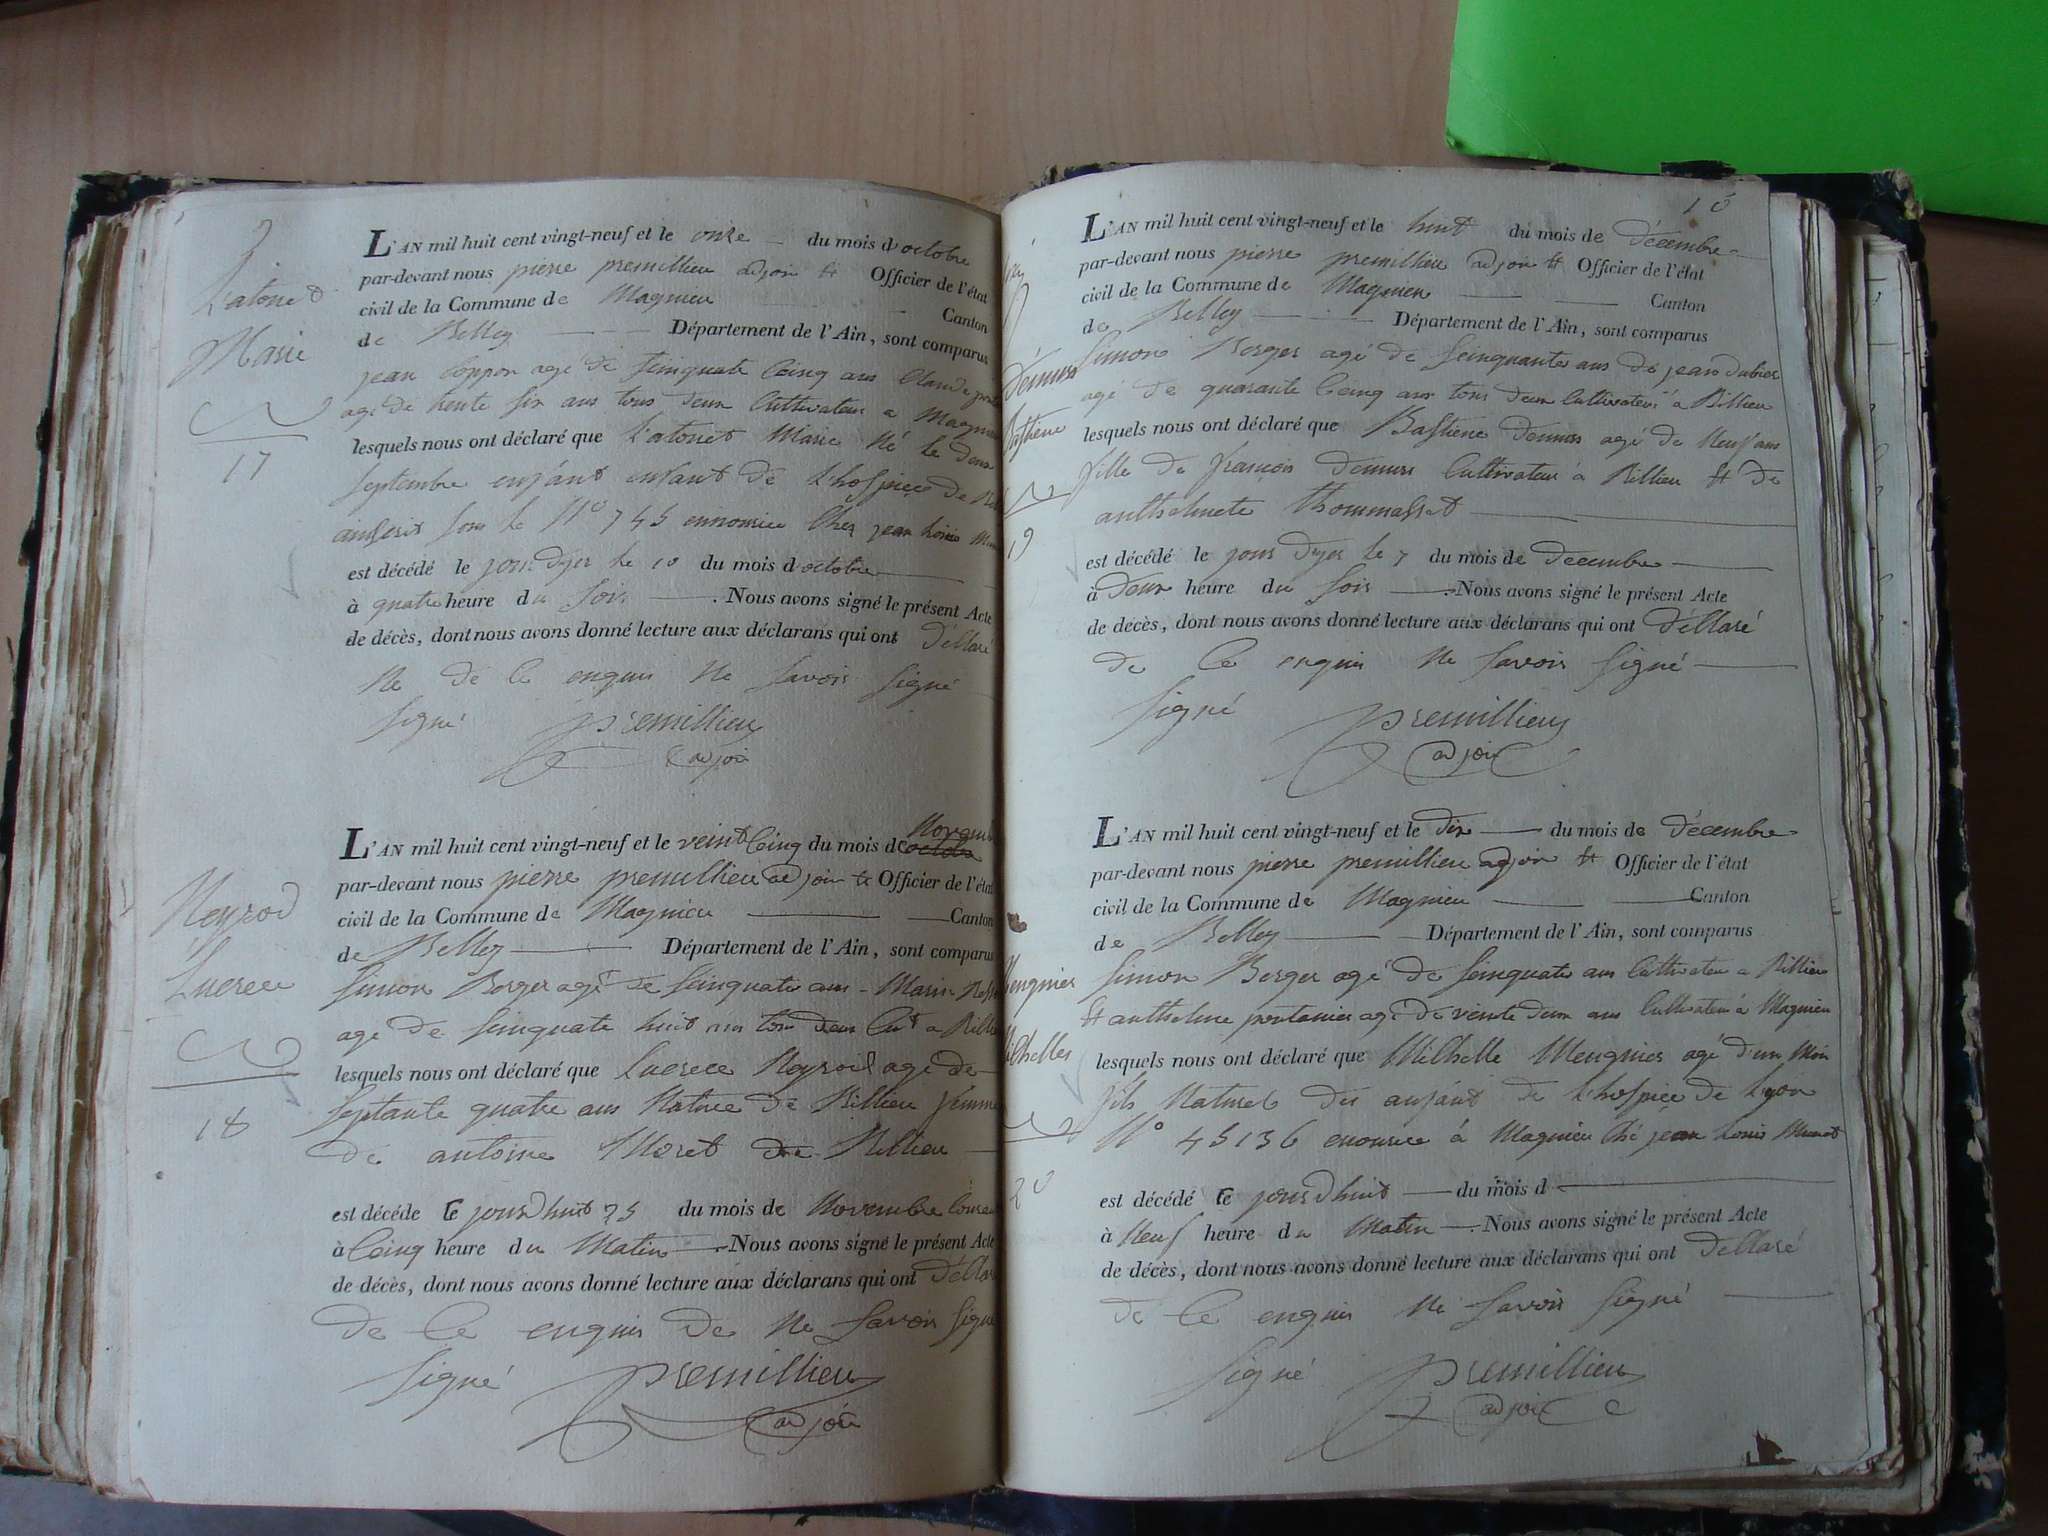 Latonet
Marie
17
L'AN mil huit cent vingt-neuf et le onze du mois d'octobre
par-devant nous pierre premillieu adjoin et Officier de l'état
civil de la Commune de Magnieu Canton
de Belley Département de l'Ain, sont comparus
jean agé de seinquate Cinq ans Claude
agé de trente six ans tous deux Cultivateur a Magnieu
lesquels nous ont déclaré que Latonet Marie Né le deux
septembre enfant enfant de Lhospice de
sous le N° 745 ennourice Chez jean Louis
est décédé le jour dyer le 10 du mois d'octobre
à quatre heure du soir. Nous avons signé le présent Acte
de décès, dont nous avons donné lecture aux déclarans qui ont déllaré
Ne de Ce enquis Ne savoir signé
signé premillieu
adjoin
Neyrod
Lucrece
18
L'AN mil huit cent vingt-neuf et le veint Cinq du mois de Novembre
par-devant nous pierre premillieu adjoin et Officier de l'état
civil de la Commune de Magnieu Canton
de Belley Département de l'Ain, sont comparus
simon Berger agé de seinquate ans Marin
age de seinquate huit ans tous deux Cult a Billieu
lesquels nous ont déclaré que Lucrece Neyrod agé de
septante quatre ans Native de Billieu femme
de antoine Moret de Billieu
est décéde le jourdhuit 25 du mois de Novembre
à Cinq heure du Matin. Nous avons signé le présent Acte
de décès, dont nous avons donné lecture aux déclarans qui ont déllaré
de Ce enquis de Ne savoir signe
signé premillieu
adjoin
Démurs
Bastiene
19
L'AN mil huit cent vingt-neuf et le huit du mois de décembre
par-devant nous pierre premillieu adjoin et Officier de l'état
civil de la Commune de Magnieu Canton
de Belley Département de l'Ain, sont comparus
simon Berger agé de seinquante ans de jean
agé de quarante Cinq ans tous deux Cultivateur à Billieu
lesquels nous ont déclaré que Bastiene demurs agé de Neuf ans
fille de françois demurs Cultivateur à Billieu et de
anthelmete thommasset
est décédé le jour dyer le 7 du mois de decembre
à deux heure du soir. Nous avons signé le présent Acte
de decès, dont nous avons donné lecture aux déclarans qui ont déllaré
de Ce enquis Ne savoir signé
signé premillieu
adjoin
Meugnier
Milhelles
20
L'AN mil huit cent vingt-neuf et le dix du mois de décembre
par-devant nous pierre premillieu adjoin et Officier de l'état
civil de la Commune de Magnieu Canton
de Belley Département de l'Ain, sont comparus
simon Berger agé de seinquate ans Cultivateur a Billieu
et anthelme pontanier agé de veinte deux ans Cultivateur à Magnieu
lesquels nous ont déclaré que Milhelle Meugnier agé d'un Moi
fils Naturel des anfant de Lhospice de Lyon
N° 45136 enourice à Magnieu Ché jean Louis
est décédé le jourdhuit du mois d
à Neuf heure du Matin. Nous avons signé le présent Acte
de décès, dont nous avons donné lecture aux déclarans qui ont déllaré
de Ce enquis Ne savoir signé
signé premillieu
adjoin